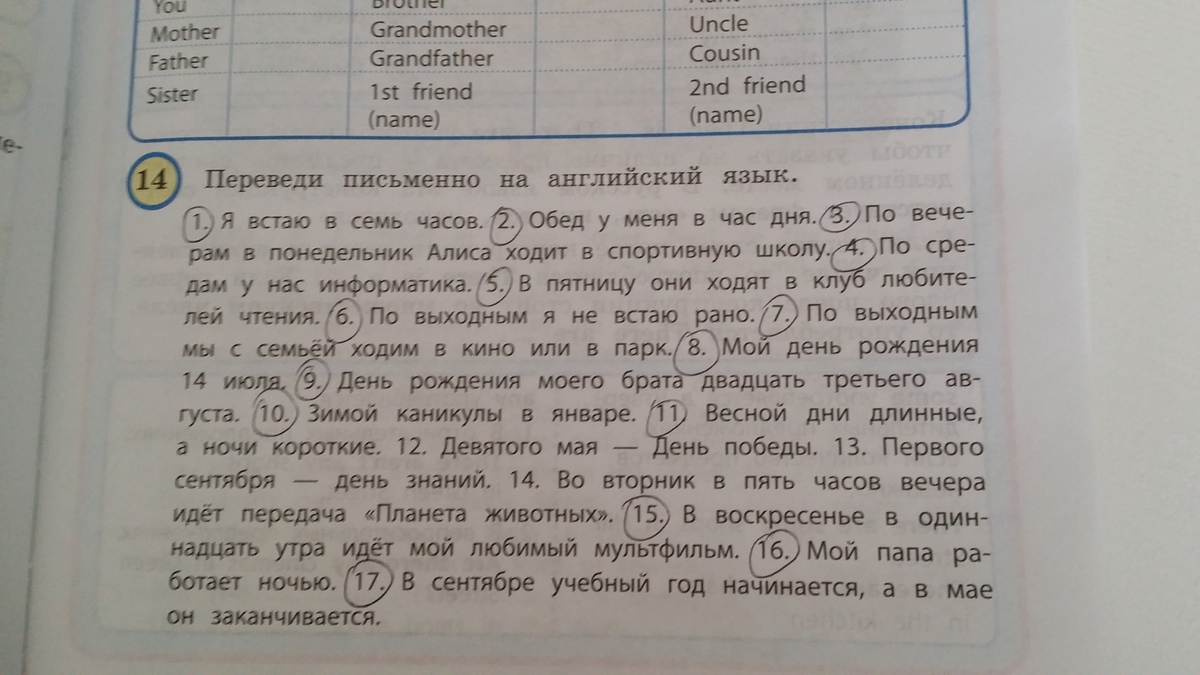 You Brother Aunt
Mother Grandmother Uncle
Father Grandfather Cousin
Sister 1st friend 2nd friend
(name) (name)
те-
14 Переведи письменно на английский язык.
1. Я встаю в семь часов. 2. Обед у меня в час дня. 3. По вече-
рам в понедельник Алиса ходит в спортивную школу. 4. По сре-
дам у нас информатика. 5. В пятницу они ходят в клуб любите-
лей чтения. 6. По выходным я не встаю рано. 7. По выходным
мы с семьёй ходим в кино или в парк. 8. Мой день рождения
14 июля. 9. День рождения моего брата двадцать третьего ав-
густа. 10. Зимой каникулы в январе. 11 Весной дни длинные,
а ночи короткие. 12. Девятого мая — День победы. 13. Первого
сентября — день знаний. 14. Во вторник в пять часов вечера
идёт передача «Планета животных». 15. В воскресенье в один-
надцать утра идёт мой любимый мультфильм. 16. Мой папа ра-
ботает ночью. 17. В сентябре учебный год начинается, а в мае
он заканчивается.